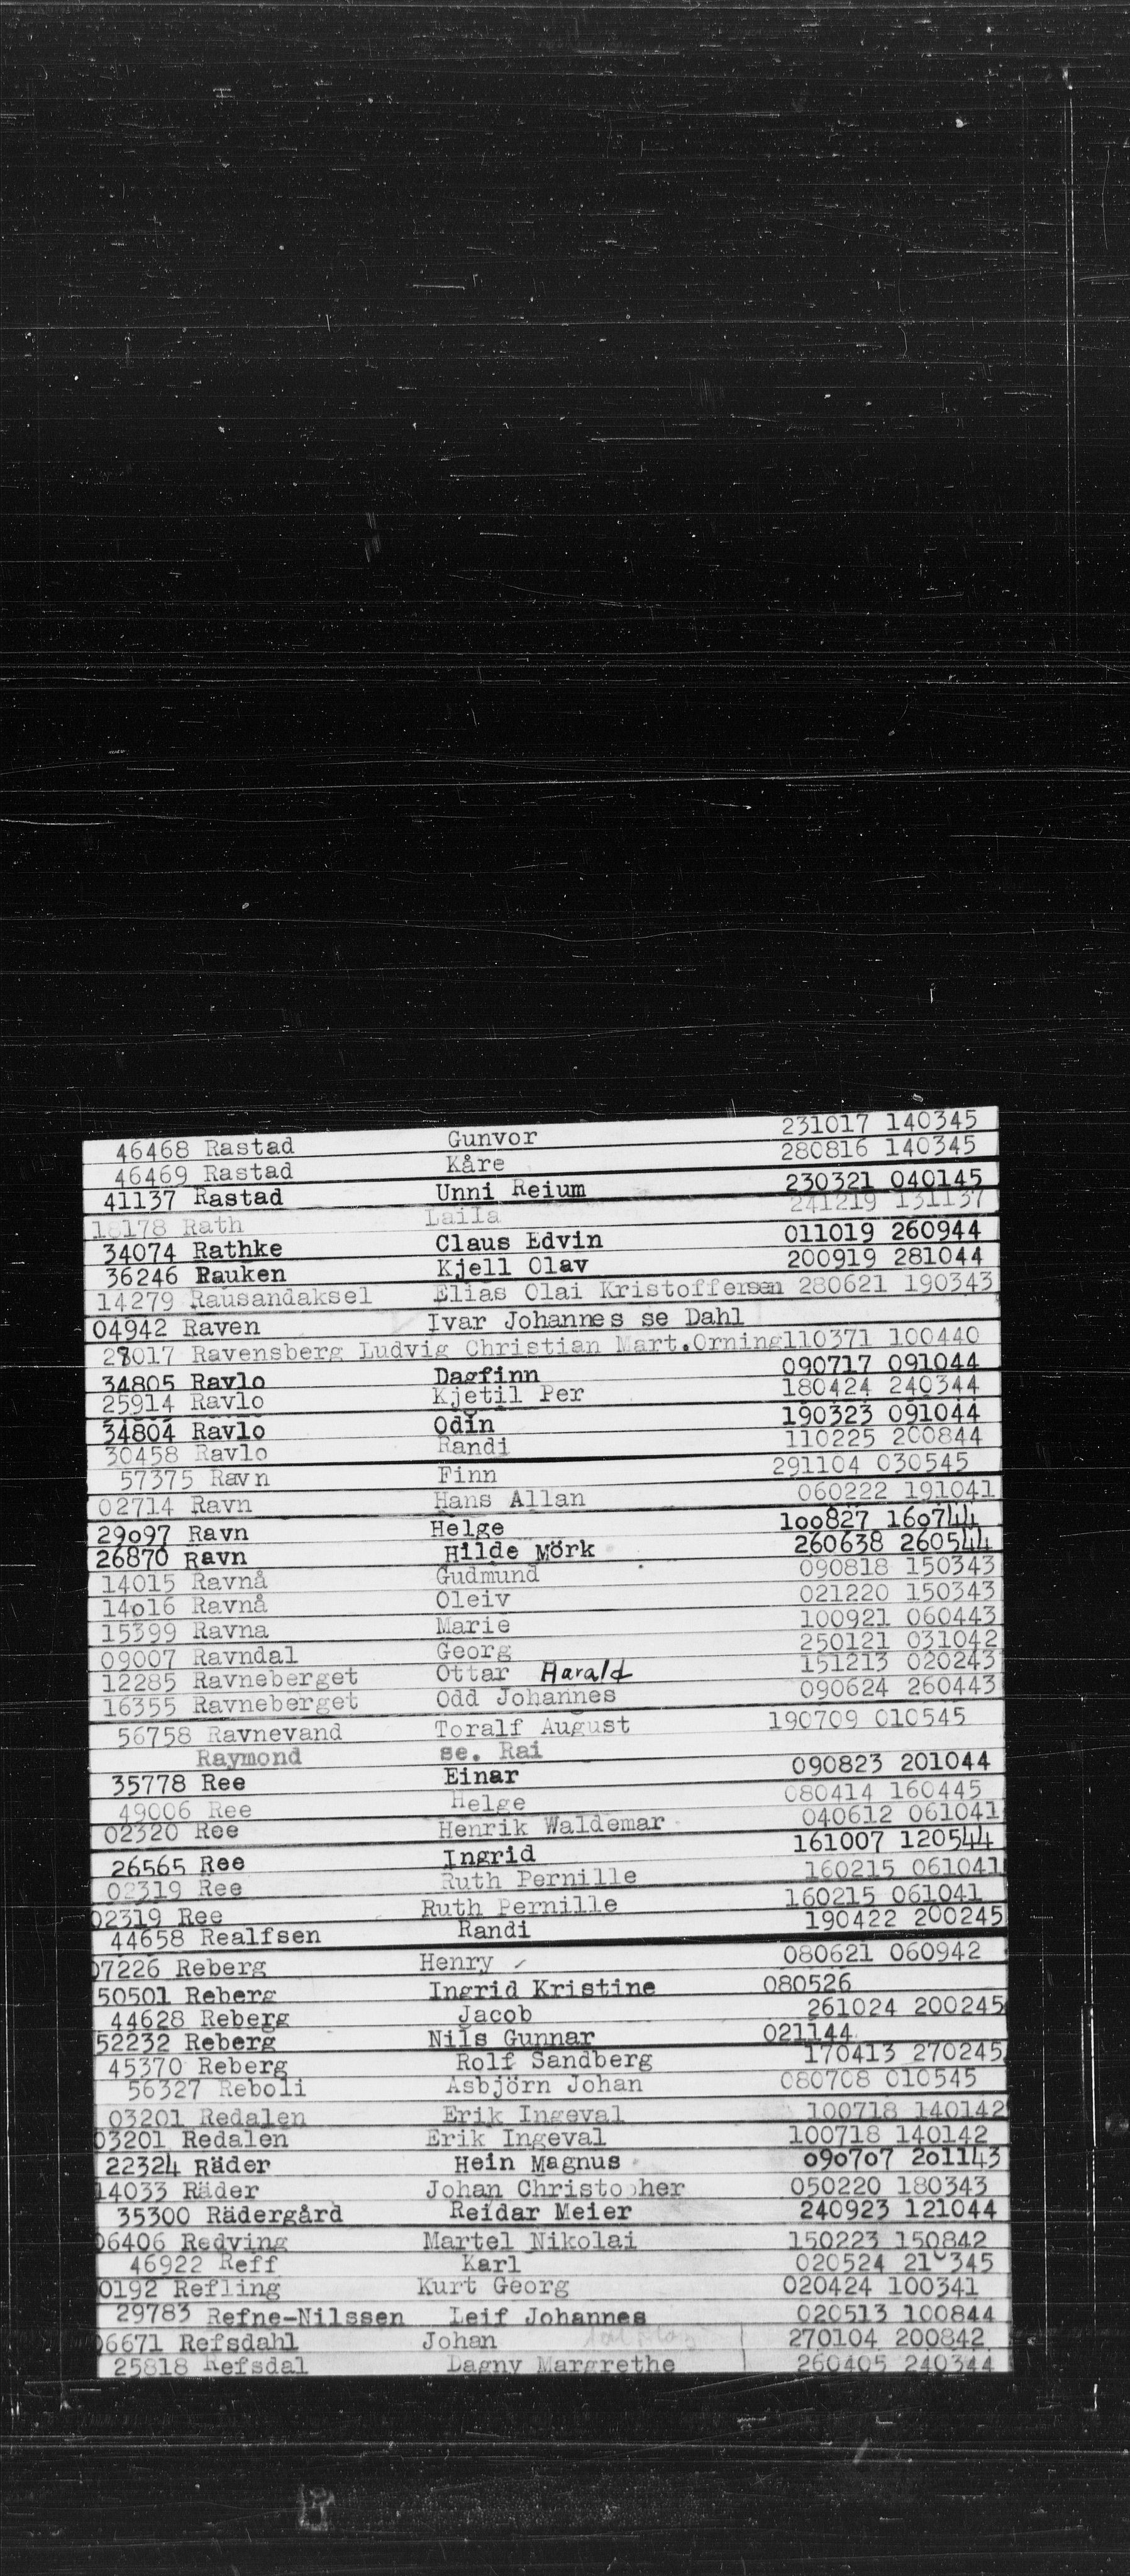 46468 Rastad Gunvor 231017 140345
46469 Rastad Kåre 280816 140345
41137 Rastad Unni Reium 230321 040145
Rath Laila 241219 131137
34074 Rathke Claus Edvin 011019 260944
36246 Rauken Kjell Olav 200919 281044
14279 Rausandaksel Elias Olai Kristoffersen 280621 190343
04942 Raven Ivar Johannes se Dahl
28017 Ravensberg Ludvig Christian Mart.Orning110371 100440
34805 Ravlo Dagfinn 090717 091044
25914 Ravlo Kjetil Per 180424 240344
34804 Ravlo Odin 190323 091044
30458 Ravlo Randi 110225 200844
57375 Ravn Finn 291104 030545
02714 Ravn Hans Allan 060222 191041
29097 Ravn Helge 100827 160744
26870 Ravn Hilde Mörk 260638 260544
14015 Ravnå Gudmund 090818 150343
14016 Ravnå Oleiv 021220 150343
15399 Ravna Marie 100921 060443
09007 Ravndal Georg 250121 031042
12285 Ravneberget Ottar Harald 151213 020243
16355 Ravneberget Odd Johannes 090624 260443
56758 Ravnevand Toralf August 190709 010545
Raymond se. Rai
35778 Ree Einar 090823 201044
49006 Ree Helge 080414 160445
02320 Ree Henrik Waldemar 040612 061041
26565 Ree Ingrid 161007 120544
02319 Ree Ruth Pernille 160215 061041
02319 Ree Ruth Pernille 160215 061041
44658 Realfsen Randi 190422 200245
07226 Reberg Henry 080621 060942
50501 Reberg Ingrid Kristine 080526
44628 Reberg Jacob 261024 200245
52232 Reberg Nils Gunnar 021144
45370 Reberg Rolf Sandberg 170413 270245
56327 Reboli Asbjörn Johan 080708 010545
03201 Redalen Erik Ingeval 100718 140142
03201 Redalen Erik Ingeval 100718 140142
22324 Räder Hein Magnus 090707 201143
14033 Räder Johan Christopher 050220 180343
35300 Rädergård Reidar Meier 240923 121044
06406 Redving Martel Nikolai 150223 150842
46922 Reff Karl 020524
0192 Refling Kurt Georg 020424 100341
29783 Refne-Nilssen Leif Johannes 020513 100844
06671 Refsdahl Johan 270104 200842
25818 Refsdal Dagny Margrethe 260405 240344